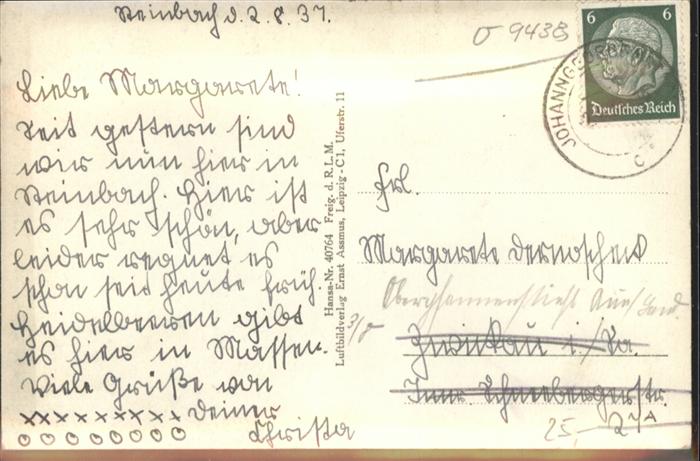 Steinbach d. 2.8.37.
Liebe Margarete!
Seit gestern sind
wir nun hier in
Steinbach. Hier ist
es sehr schön, aber
leider regnet es
schon seit heute früh.
Heidelbeeren gibt
es hier in Massen.
Viele Grüße von
xxxxxxxxx Deiner
oooooooo Christa
Hansa-Nr. 40764 Freig. d. R.L.M.
Luftbildverlag Ernst Assmus, Leipzig-C1, Uferstr. 11
σ 943B
6 6
Deutsches Reich
JOHANNGEORGEN
Frl.
Margarete Dernoscheck
Zwickau i./Sa.
Innr. Schneebergerstr.
25.-